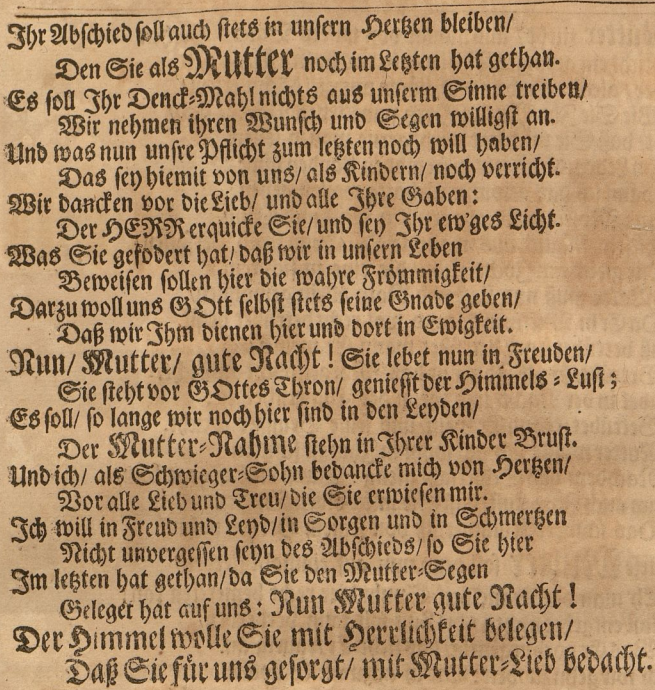 Ihr Abschied soll auch stets in unsern Hertzen bleiben/
Den Sie als Mutter noch im Letzten hat gethan.
Es soll Ihr Denck-Mahl nichts aus unserm Sinne treiben/
Wir nehmen ihren Wunsch und Segen willigst an.
Und was nun unsre Pflicht zum letzten noch will haben/
Das sey hiemit von uns/ als Kindern/ noch verricht.
Wir dancken vor die Lieb/ und alle Ihre Gaben:
Der HERR erquicke Sie/ und sey Ihr ew'ges Licht.
Was Sie gefodert hat/ daß wir in unsern Leben
Beweisen sollen hier die wahre Frömmigkeit/
Darzu woll uns GOtt selbst stets seine Gnade geben/
Daß wir Ihm dienen hier und dort in Ewigkeit.
Nun/ Mutter/ gute Nacht! Sie lebet nun in Freuden/
Sie steht vor GOttes Thron/ geniesst der Himmels-Lust;
Es soll/ so lange wir noch hier sind in den Leyden/
Der Mutter-Nahme stehn in Ihrer Kinder Brust.
Und ich/ als Schwieger-Sohn bedancke mich von Hertzen/
Vor alle Lieb und Treu/ die Sie erwiesen mir.
Ich will in Freud und Leyd/ in Sorgen und in Schmertzen
Nicht unvergessen seyn des Abschieds/ so Sie hier
Im letzten hat gethan/ da Sie den Mutter-Segen
Geleget hat auf uns: Nun Mutter gute Nacht!
Der Himmel wolle Sie mit Herrlichkeit belegen/
Daß Sie für uns gesorgt/ mit Mutter-Lieb bedacht.